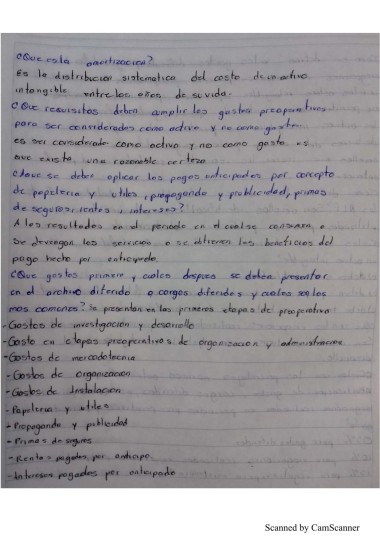 ¿Que es la amortizacion?
Es la distribucion sistematica del costo de un activo
intangible entre los años de su vida.
¿Que requisitos deben cumplir los gastos preoperativos
para ser considerados como activo y no como gasto
es ser considerado como activo y no como gasto es
que exista una razonable certeza
¿Que se debe aplicar los pagos anticipados por concepto
de papeleria y utiles, propaganda y publicidad, primas
de seguros, rentas, intereses?
A los resultados en el periodo en el cual se consuma o
se devengan los servicios o se obtienen los beneficios del
pago hecho por anticipado
¿Que gastos primero y cuales despues se deben presentar
en el archivo diferido o cargos diferidos y cuales son los
mas comunes? Se presentan en las primeras etapas de preoperativa
-Gastos de investigacion y desarrollo
-Gasto en etapas preoperativas de organizacion y administracion
-Gastos de mercadotecnia
-Gastos de organizacion
-Gastos de Instalacion
-Papeleria y utiles
-Propaganda y publicidad
-Primas de seguros
-Rentas pagadas por anticipo.
-Intereses pagados por anticipado
Scanned by CamScanner